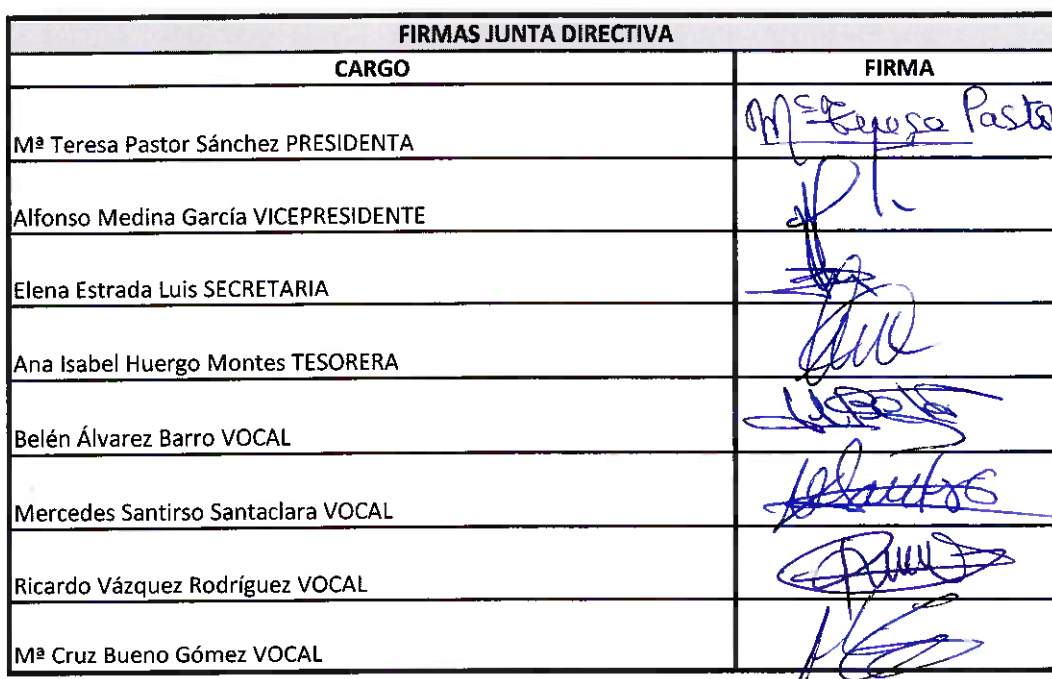 FIRMAS JUNTA DIRECTIVA
CARGO FIRMA
Mª Teresa Pastor Sánchez PRESIDENTA Mª Teresa Pastor
Alfonso Medina García VICEPRESIDENTE
Elena Estrada Luis SECRETARIA
Ana Isabel Huergo Montes TESORERA
Belén Álvarez Barro VOCAL
Mercedes Santirso Santaclara VOCAL
Ricardo Vázquez Rodríguez VOCAL
Mª Cruz Bueno Gómez VOCAL